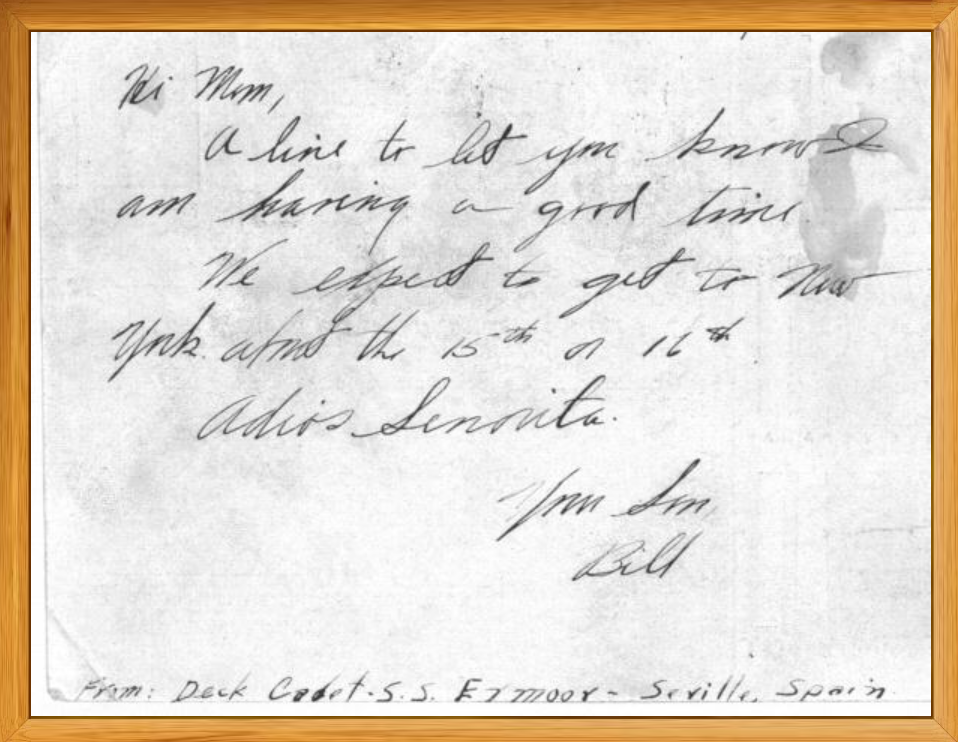 Hi Mom,
A line to let you know I
am having a good time
We expect to get to New
York about the 15th or 16th
Adios Senorita.
Your Son,
Bill
From: Deck Cadet - S.S. Exmoor - Seville, Spain.